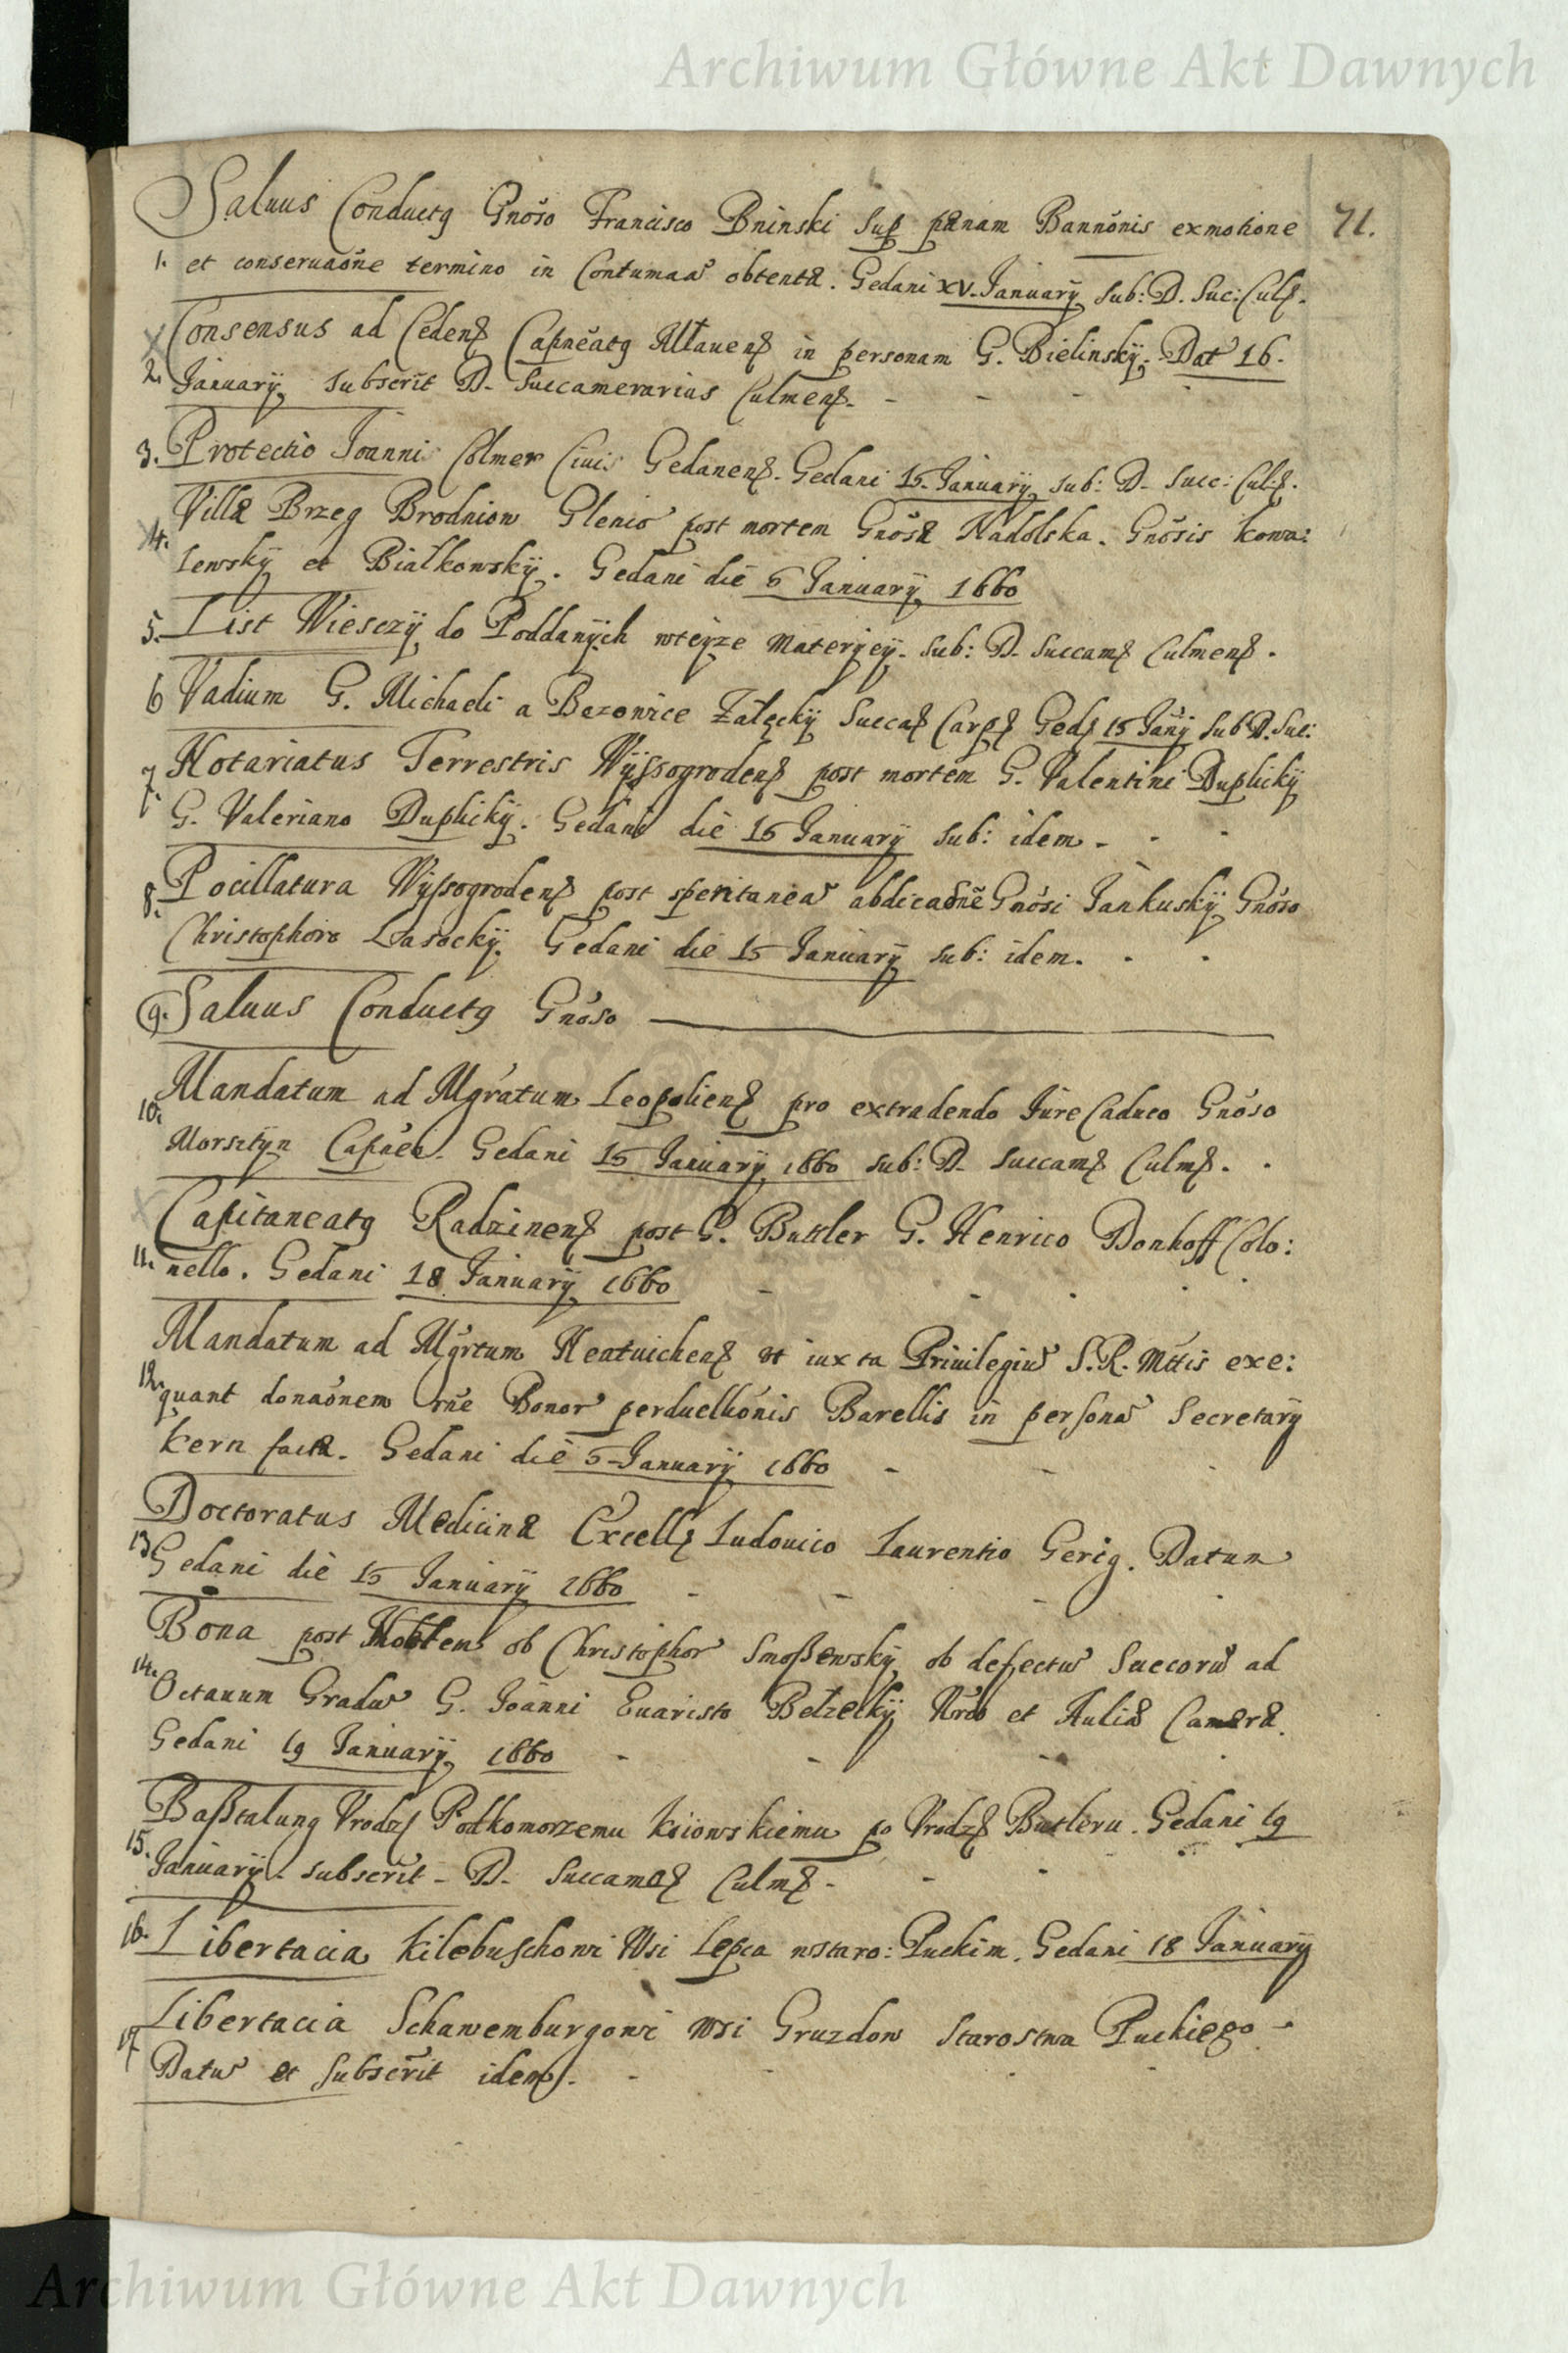 Archiwum Główne Akt Dawnych
71.
Saluus Conductꝯ Gnŏso Francisco Bninski Sup pænam Bannŏnis exmotione
1. et conseruaŏne termino in Contumaã obtentæ. Gedani XV. Januarÿ sub: D. Suc: Culm.
Consensus ad Cedenꝫ Capneatꝯ Mlauenꝫ in personam G. Bielinskÿ. Dat 16.
2. Januarÿ subscrit D. Succamerarius Culmenꝫ.
3. Protectio Joanni Colmer Ciuis Gedanenꝫ. Gedani 15. Januarÿ sub: D. Succ: Culꝫ.
Villæ Brzeg Brodniow Glenio post mortem Gnŏsæ Nadolska. Gnŏsis Kowa:
4. lewskÿ et Białkowskÿ. Gedani die 6 Januarÿ 1660
5. List Wieszÿ do Poddanÿch wteÿze Materÿeÿ. sub: D. Succamꝫ Culmenꝫ.
6 Vadium G. Michaeli a Bezowice Załęckÿ Succaꝫ Ged 15 Janÿ sub D. Suc:
Notariatus Terrestris Wÿssogrodenꝫ post mortem G. Valentini Duplickÿ
7. G. Valeriano Duplickÿ. Gedani die 16 Januarÿ sub: idem.
8. Pocillatura Wÿssogrodenꝫ post spontaneã abdicaŏne Gnŏsi Jankuskÿ Gnŏso
Christophoro Lasockÿ. Gedani die 15 Januarÿ sub: idem.
9. Saluus Conductꝯ Gnŏso
Mandatum ad Mgratum Leopolienꝫ pro extradendo Jure Caduco Gnŏso
10. Morsztyn Capneo. Gedani 15 Januarÿ 1660 sub: D. Succamꝫ Culmꝫ.
Capitaneatꝯ Radzinenꝫ post G. Buttler G. Henrico Donhoff Colo:
11. nello. Gedani 18 Januarÿ 1660
Mandatum ad Mgrtum ut iuxta Priuilegiũ S. R. Mttis exe:
12. quant donaŏnem rne Bonorũ perduellionis Barellis in personã Secretarÿ
Kern factæ. Gedani die 5 Januarÿ 1660
Doctoratus Medicinæ Excellꝫ Ludouico Laurentio Gerig. Datum
13 Gedani die 15 Januarÿ 1660
Bona post ob Christophorũ Smoßewskÿ ob defectũ Succorũ ad
14. Octauum Gradũ G. Joanni Euaristo Bełzeckÿ Nrõ et Auliæ Cameræ.
Gedani 19 Januarÿ 1660
Baßtalung Vrodzꝫ Podkomorzemu Kiiowskiemu po Vrodzꝫ Butleru. Gedani 19
15. Januarÿ. subscrit. D. Succamꝫ Culmꝫ.
16. Libertacia Kilebuschowi Wsi Lepca wstaro: Puckim. Gedani 18 Januarÿ
Libertacia Schawemburgowi Wsi Gruzdow Starostwa Puckiego.
17 Datũ et Subscrit idem.
Archiwum Główne Akt Dawnych